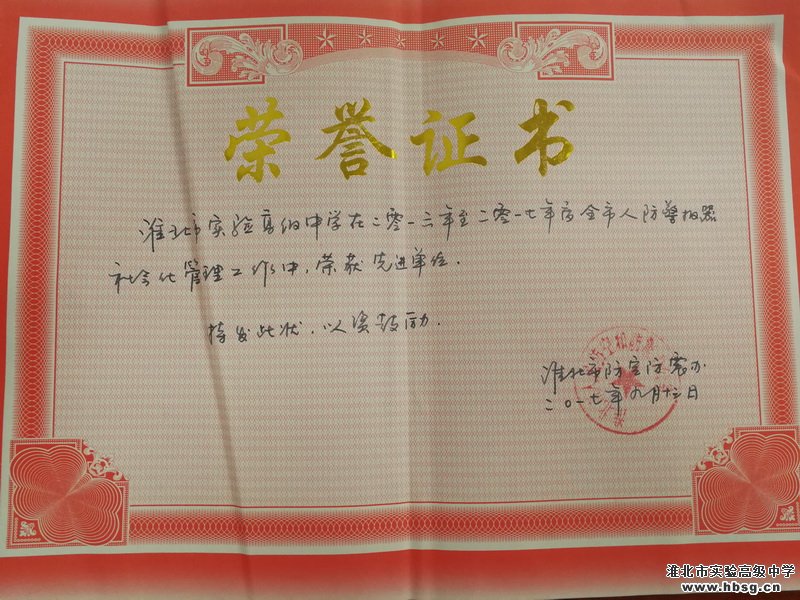 荣誉证书
淮北市实验高级中学在二零一三年至二零一七年度全市人防警报器
社会化管理工作中,荣获先进单位.
特发此状,以资鼓励.
淮北市防空防震办
二0一七年九月十三日
淮北市实验高级中学
www.hbsg.cn